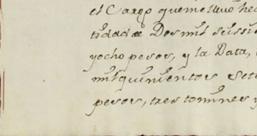 el Cargo que me tubo hec
tidad de Dos mil seissi
yocho pesos, y la Data,
mil quinientos sete
pesos, tres tomines y